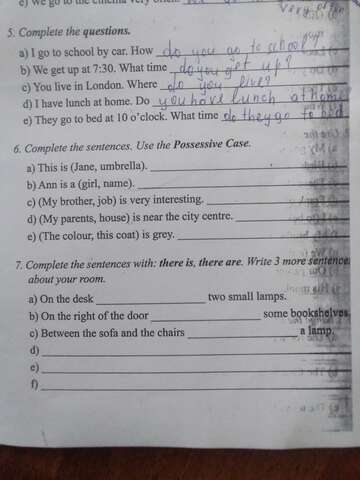 e) We go to the cinema very often.
very often
5. Complete the questions.
a) I go to school by car. How do you go to school?
b) We get up at 7:30. What time do you get up?
c) You live in London. Where do you live?
d) I have lunch at home. Do you have lunch at home
e) They go to bed at 10 o'clock. What time do they go to bed
6. Complete the sentences. Use the Possessive Case.
a) This is (Jane, umbrella).
b) Ann is a (girl, name).
c) (My brother, job) is very interesting.
d) (My parents, house) is near the city centre.
e) (The colour, this coat) is grey.
7. Complete the sentences with: there is, there are. Write 3 more sentences
about your room.
a) On the desk ____ two small lamps.
b) On the right of the door ____ some bookshelves.
c) Between the sofa and the chairs ____ a lamp.
d)
e)
f)